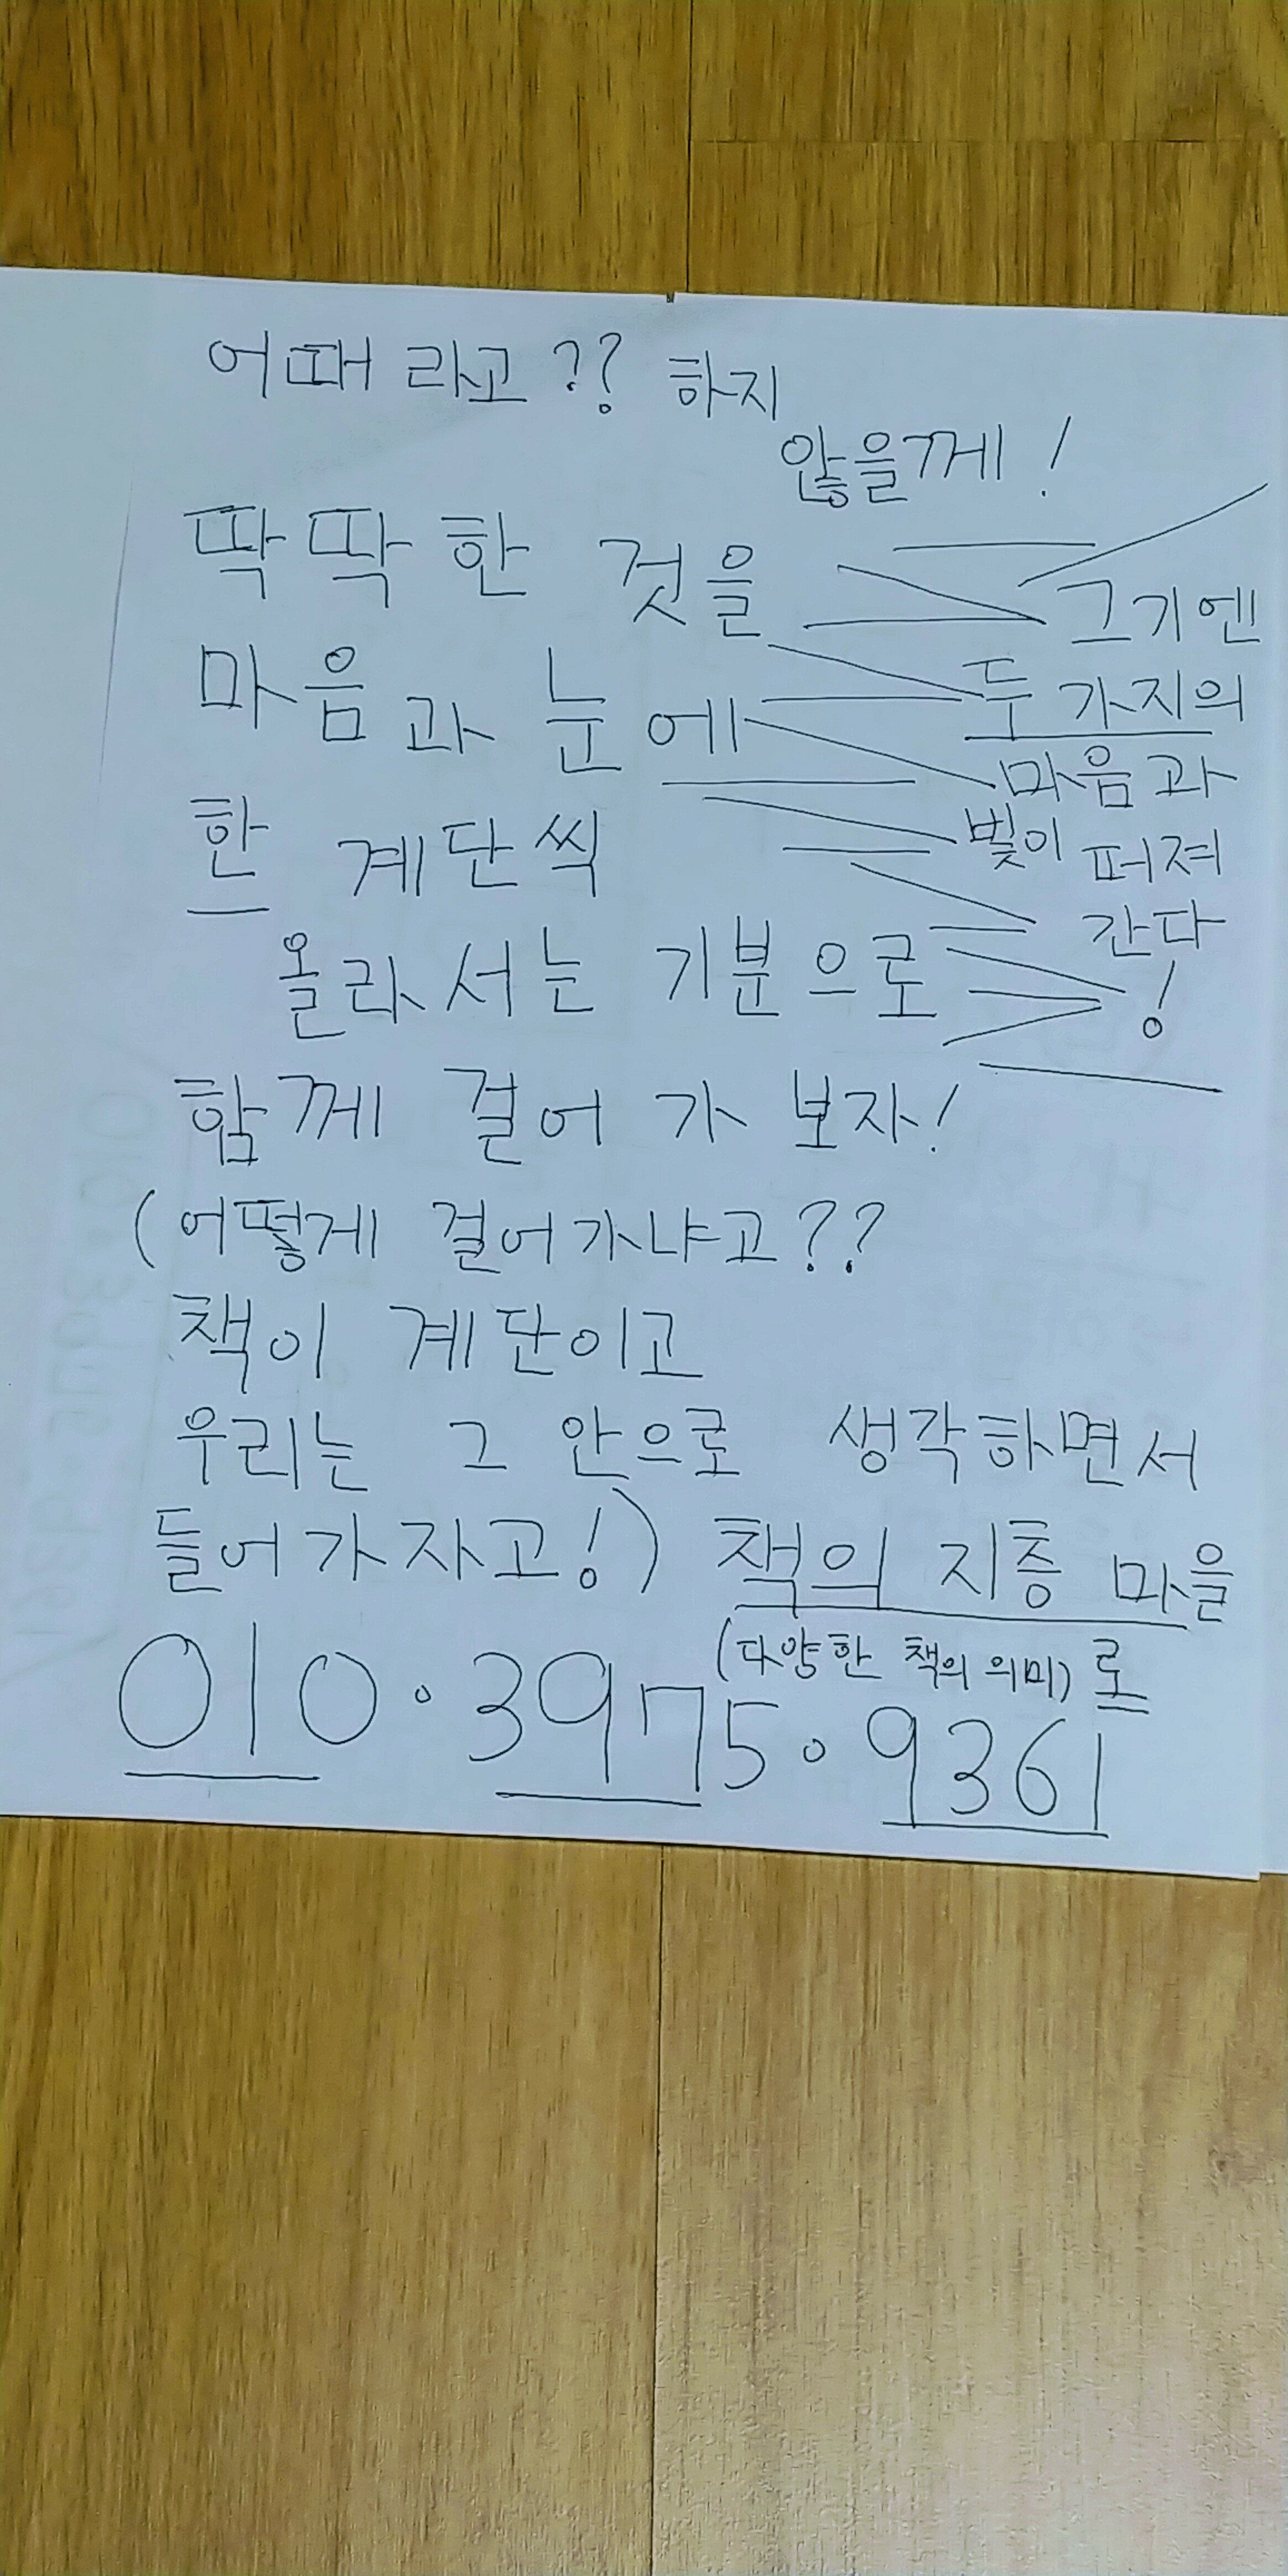 어때 라고?? 하지
않을께!
딱딱한 것을
마음과 눈에
한 계단씩
올라서는 기분으로
그기엔
두 가지의
마음과
빛이 퍼져
간다
!
함께 걷어 가 보자!
(어떻게 걸어가냐고??
책이 계단이고
우리는 그 안으로 생각하면서
들어가자고!) 책의 지층 마을
(다양한 책의 의미)로
010.3975.9361